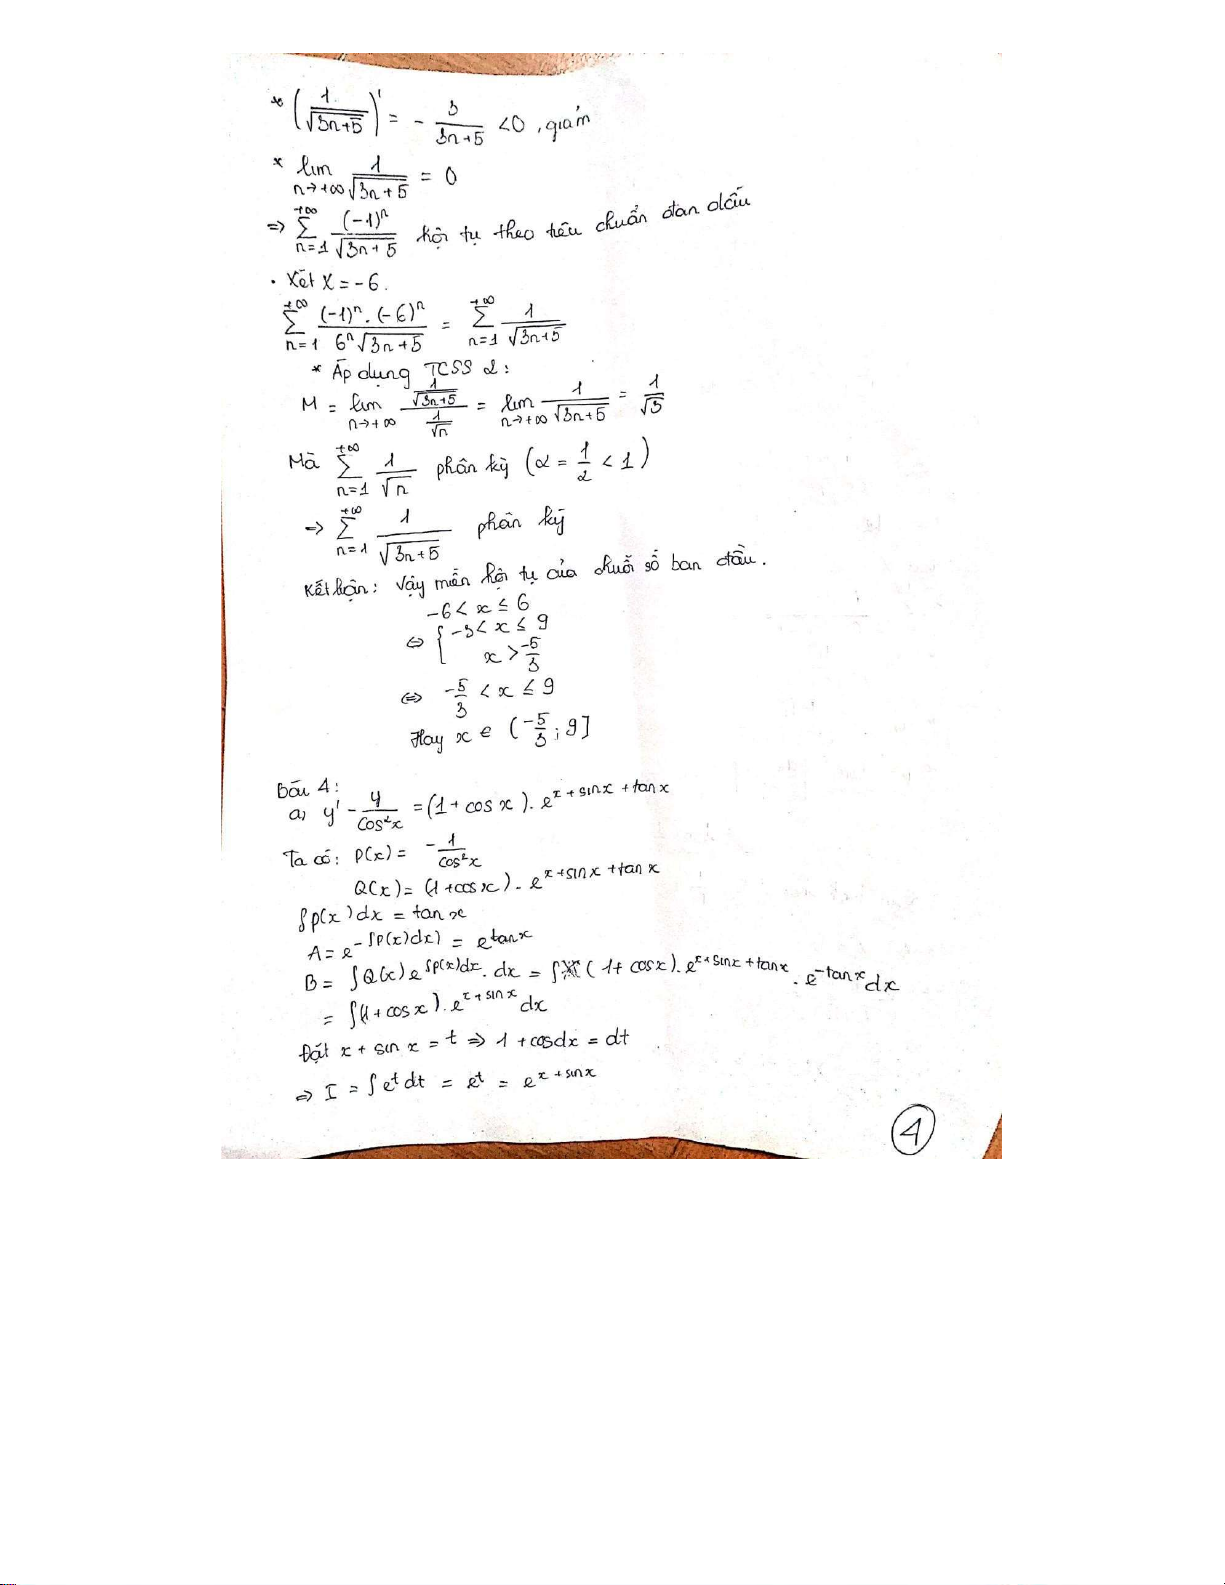 * (1/√(3n+5))' = - 3/(3n+5) <0, giảm
* lim n→+∞ 1/√(3n+5) = 0
⇒ +∞ ∑ n=1 (-1)ⁿ/√(3n+5) hội tụ theo tiêu chuẩn đan dấu
• Xét X = -6.
+∞ ∑ n=1 (-1)ⁿ.(-6)ⁿ/(6ⁿ√(3n+5)) = +∞ ∑ n=1 1/√(3n+5)
* Áp dụng TCSS 2:
M = lim n→+∞ (1/√(3n+5))/(1/√n) = lim n→+∞ 1/√(3n+5) = 1/√3
Mà +∞ ∑ n=1 1/√n phân kỳ (α = 1/2 < 1)
⇒ +∞ ∑ n=1 1/√(3n+5) phân kỳ
Kết luận: Vậy miền hội tụ của chuỗi số ban đầu.
-6 < x ≤ 6
⇔ { -3 < x ≤ 9
x > -5/3
⇔ -5/3 < x ≤ 9
Hay x ∈ (-5/3; 9]
Bài 4:
a) y' - y/cos²x = (1 + cos x). e^(x + sinx + tanx)
Ta có: P(x) = - 1/cos²x
Q(x) = (1 + cos x). e^(x + sin x + tan x)
∫p(x)dx = tan x
A = e^(-∫p(x)dx) = e^(tanx)
B = ∫Q(x) e^(∫p(x)dx). dx = ∫(1 + cosx). e^(x + sinx + tanx). e^(-tanx) dx
= ∫(1 + cos x). e^(x + sin x) dx
Đặt x + sin x = t ⇒ 1 + cosdx = dt
⇒ I = ∫e^t dt = e^t = e^(x + sinx)
4